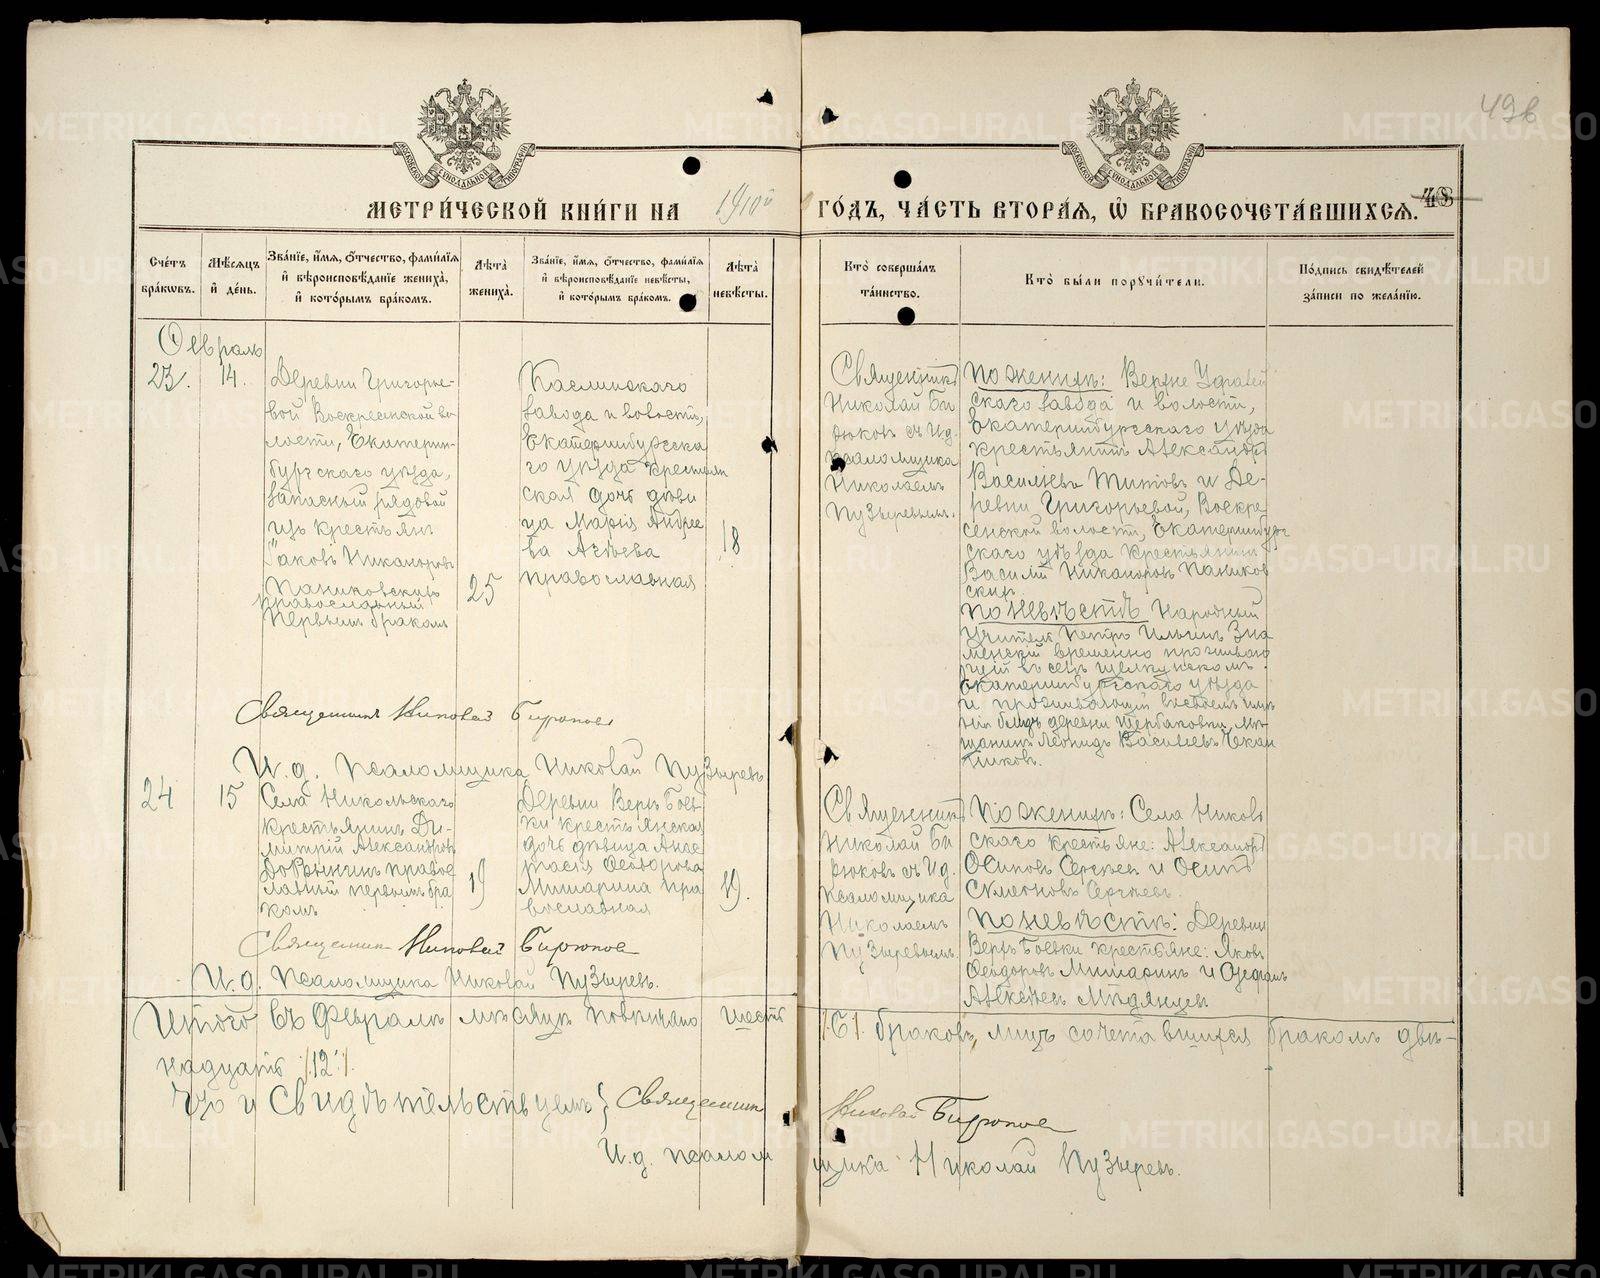 49в
МОСКОВСКОЙ СѴНОДАЛЬНОЙ ТИПОГРАФІИ
МОСКОВСКОЙ СѴНОДАЛЬНОЙ ТИПОГРАФІИ
МЕТРИ́ЧЕСКОЙ КНИ́ГИ НА 1910й ГО́ДЪ, ЧА́СТЬ ВТОРА́Я, Ѡ҆ БРАКОСОЧЕТА́ВШИХСЯ. 48
Сче́тъ бра́кѡвъ.
Мѣ́сяцъ и҆ де́нь.
Зва́нїе, и҆́мя, ѻ҆́тчество, фами́лїя и҆ вѣроисповѣ́данїе жениха̀, и҆ кото́рымъ бра́комъ.
Лѣ́та жениха̀.
Зва́нїе, и҆́мя, ѻ҆́тчество, фами́лїя и҆ вѣроисповѣ́данїе невѣ́сты, и҆ кото́рымъ бра́комъ.
Лѣ́та невѣ́сты.
Кто̀ соверша́лъ та́инство.
Кто̀ бы́ли порꙋчи́тели.
По́дпись свидѣ́телей за́писи по жела́нїю.
Февраль
23.
14.
Деревни Григорье-
вой Воскресенской во
лости, Екатерин-
бургскаго уѣзда,
запасный рядовой
изъ крестьянъ
Iаковъ Никаноровъ
Паниковскихъ
православный
первымъ бракомъ
25
Каслинскаго
завода и волости,
Екатеринбургска
го уѣзда крестьян
ская дочь дѣви
ца Марія Андрее
ва
православная
18
Священникъ
Николай Би
рюковъ съ И.д.
псаломщика
Николаемъ
Пузыревымъ.
По женихѣ: Верхне Уфалей
скаго завода и волости,
Екатеринбургскаго уѣзда
крестьянинъ Александръ
Васильевъ Титовъ и де-
ревни Григорьевой, Воскре
сенской волости, Екатеринбург
скаго уѣзда крестьянинъ
Василій Никаноровъ Паников
скихъ.
По невѣстѣ Народный
учитель Петръ Ильинъ Зна
менскій временно проживаю
щій въ селѣ Щелкунскомъ
Екатеринбургскаго уѣзда
и проживающій въ своемъ имѣ
ніи близъ деревни Щербаковки, мѣ
щанинъ Леонидъ Васильевъ Чекан
никовъ.
Священникъ Николай Бирюковъ
И.д. псаломщика Николай Пузыревъ
24
15
Села Никольскаго
крестьянинъ Ди-
митрій Александровъ
Добрынинъ правос
лавный первымъ бра
комъ
19
Деревни Верхъ Боев-
ки крестьянская
дочь дѣвица Анас
тасія Ѳеодорова
Мишарина пра
вославная
19.
Священникъ
Николай Би
рюковъ съ И.д.
псаломщика
Николаемъ
Пузыревымъ.
По женихѣ: Села Николь
скаго крестьяне: Александръ
Осиповъ Сергѣевъ и Осипъ
Симеоновъ Сергѣевъ.
По невѣстѣ: Деревни
Верхъ Боевки крестьяне: Яковъ
Ѳеодоровъ Мишаринъ и
Алексѣевъ
Священникъ Николай Бирюковъ
И.д. псаломщика Николай Пузыревъ.
Итого въ Февралѣ мѣсяцѣ повѣнчано шесть /6/ браковъ, лицъ сочетавшихся бракомъ двѣ-
надцать /12/.
Что и свидѣтельствуемъ} Священникъ Николай Бирюковъ
И.д. псаломщика Николай Пузыревъ.